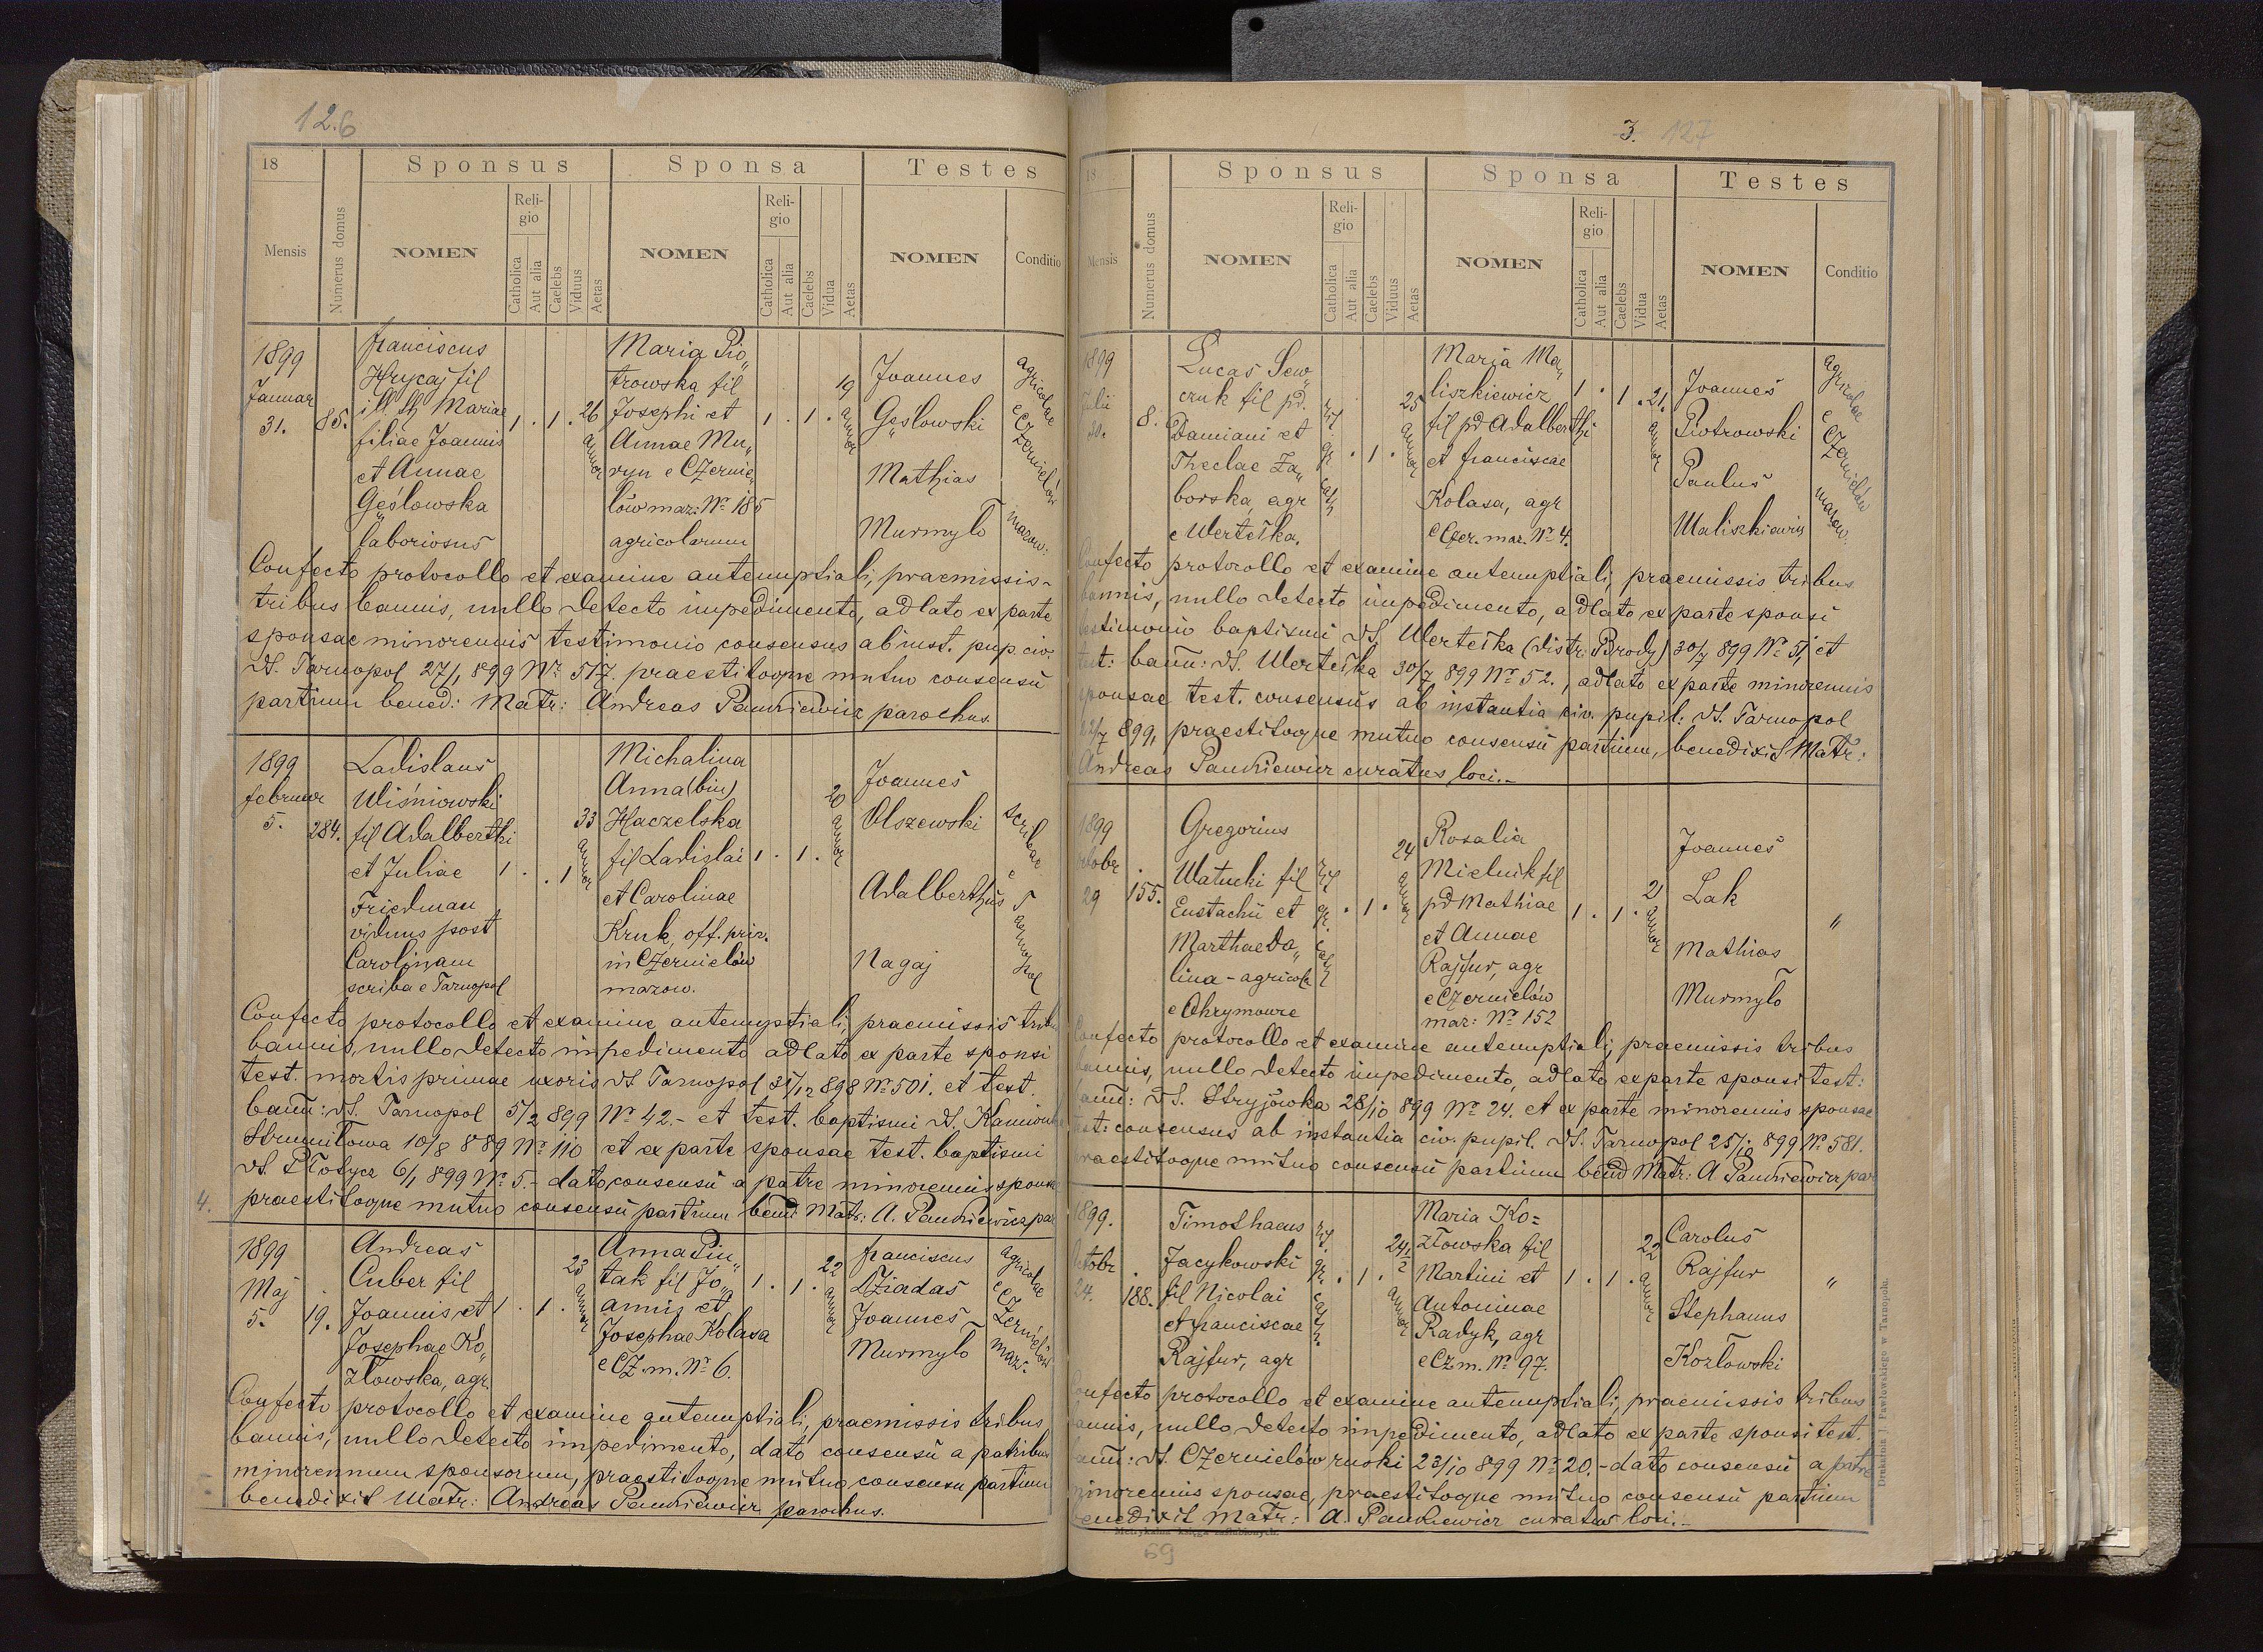 126
18
Sponsus
Sponsa
Testes
Mensis
Numerus domus
NOMEN
Religio
Catholica
Aut alia
Caelebs
Viduus
Aetas
NOMEN
Religio
Catholica
Aut alia
Caelebs
Vidua
Aetas
NOMEN
Conditio
1899
Januar
31.
85.
Franciscus
Hrycaj fil
ill. Mariae
filiae Joannis
et Annae
Gęślowska
laboriosus
1 . 1 . 26 annor
Maria Pio„
trowska fil
Josephi et
Annae Mu„
ryn e Czernie„
lów maz: Nr 185
agricolarum
1 . 1 . 19 annor
Joannes
Gęslowski
Mathias
Murmyło
agricolae e Czernielów mazow:
Confecto protocollo et examine antenuptiali, praemissis
tribus bannis, nullo detecto impedimento, adlato ex parte
sponsae minorennis testimonio consensus ab inst. pup. civ.
dd. Tarnopol 27/1 899 Nr 517. praestitoque mutuo consensu
partium bened: Matr: Andreas Pankiewicz parochus.
1899
Februar
5.
284.
Ladislaus
Wiśniowski
fil Adalberthi
et Juliae
Friedman
viduus post
Carolinam
scriba e Tarnopol
1 . . 1 33 annor
Michalina
Anna (bin)
Haczelska
fil Ladislai
et Carolinae
Kruk, off. priv.
in Czernielów
mazow.
1 . 1 . 20 annor
Joannes
Olszewski
Adalberthus
Nagaj
scribae e Tarnopol
Confecto protocollo et examine antenuptiali, praemissis tribu
bannis, nullo detecto impedimento adlato ex parte sponsi
test. mortis primae uxoris dd Tarnopol 31/12 898 Nr 501. et test.
bann: dd. Tarnopol 5/2 899 Nr 42.- et test. baptismi dd. Kamionk
Strumiłowa 10/8 889 Nr 110 et ex parte sponsae test. baptismi
dd. Płotycz 6/1 899 Nr 5.- dato consensu a patre minorennis sponsae
praestitoque mutuo consensu partium bened Matr: A. Pankiewicz par
4.
1899
Maj
5.
19.
Andreas
Cuber fil
Joannis et
Josephae Ko„
złowska, agr.
1 . 1 . 23 annor
Anna Pin„
tak fil Jo„
annis et
Josephae Kolasa
e Cz. m. Nr 6.
1 . 1 . 22 annor
Franciscus
Dziadas
Joannes
Murmyło
agricolae e Czernielów maz:
Confecto protocollo et examine antenuptiali, praemissis tribus
bannis, nullo detecto impedimento, dato consensu a patribus
minorennum sponsorum, praestitoque mutuo consensu partium
benedixit Matr: Andreas Pankiewicz parochus.
3. 127
18
Sponsus
Sponsa
Testes
Mensis
Numerus domus
NOMEN
Religio
Catholica
Aut alia
Caelebs
Viduus
Aetas
NOMEN
Religio
Catholica
Aut alia
Caelebs
Vidua
Aetas
NOMEN
Conditio
1899
Julii
30.
8.
Lucas Sew„
czuk fil pd.
Damiani et
Theclae Za„
borska, agr
e Wertełka.
rit gr cath
. 1 . 25 annor
Marja Ma„
liszkiewicz
fil pd Adalberthi
et Franciscae
Kolasa, agr
e Czer. maz. Nr 4.
1 . 1 . 21. annor
Joannes
Piotrowski
Paulus
Maliszkiewicz
agricolae e Czernielów mazow:
Confecto protocollo et examine antenuptiali, praemissis tribus
bannis, nullo detecto impedimento, adlato ex parte sponsi
testimonio baptismi dd. Wertełka (distr: Brody) 30/7 899 Nr 51, et
test: bann: dd. Wertełka 30/7 899 Nr 52., adlato ex parte minorennis
sponsae test. consensus ab instantia civ. pupil: dd. Tarnopol
22/7 899, praestitoque mutuo consensu partium, benedixit Matr:
Andreas Pankiewicz curatus loci.-
1899
Octobr
29
155.
Gregorius
Watucki fil
Eustachii et
Marthae Da„
lina - agricola
e Ochrymowce
rit gr. cath
. 1 . 24 annor
Rosalia
Mielnik fil
pd Mathiae
et Annae
Rajfur, agr
e Czernielów
maz: Nr 152
1 . 1 . 21 annor
Joannes
Lak
Mathias
Murmyło
„
Confecto protocollo et examine antenuptiali, praemissis tribus
bannis, nullo detecto impedimento, adlato ex parte sponsi test:
bann: dd. Stryjówka 28/10 899 Nr 24. et ex parte minorennis sponsae
test: consensus ab instantia civ. pupil. dd. Tarnopol 25/10 899 Nr 581.
praestitoque mutuo consensu partium bened Matr: A Pankiewicz par
1899.
Octobr
24.
188.
Timothaeus
Jacykowski
fil Nicolai
et Franciscae
Rajfur, agr
rit. gr. cath.
. 1 . 24 1/2 annor
Maria Ko=
złowska fil
Martini et
Antoninae
Radyk, agr
e Cz m. Nr 97.
1 . 1 . 22 annor
Carolus
Rajfur
Stephanus
Kozłowski
„
Confecto protocollo et examine antenuptiali, praemissis tribus
bannis, nullo detecto impedimento, adlato ex parte sponsi test.
bann: dd. Czernielów ruski 23/10 899 Nr 20.- dato consensu a patre
minorennis sponsae, praestitoque mutuo consensu partium
benedixit Matr: A. Pankiewicz curatus loci.-
Metrykalna księga zaślubionych.
Drukarnia J. Pawłowskiego w Tarnopolu.
69